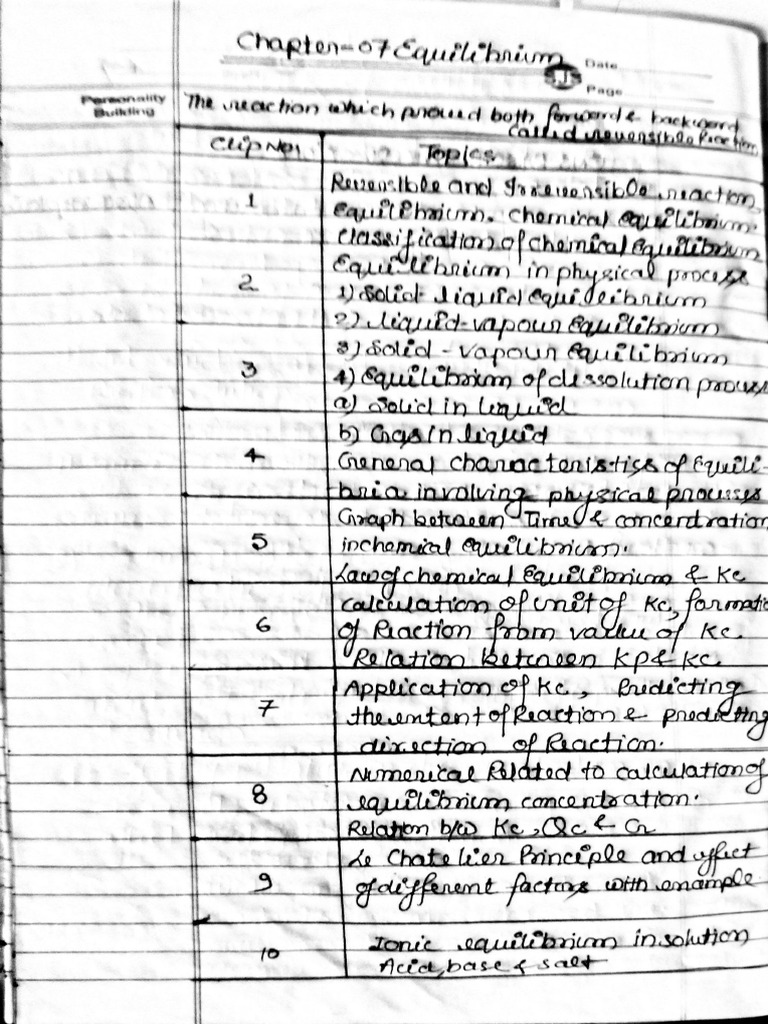 Chapter-07 Equilibrium
Date
SJS
Page
Personality
Building
The reaction which proceed both forward & backward
called reversible Reaction
Clip No.
Topics
1
Reversible and Irreversible reaction,
Equilibrium. Chemical Equilibrium.
Classification of Chemical Equilibrium
2
Equilibrium in physical process
1) Solid-liquid equilibrium
2) liquid-vapour Equilibrium
3
3) Solid-vapour Equilibrium
4) Equilibrium of dissolution process
a) Solid in liquid
4
b) Gas in liquid
General characteristics of Equili-
bria involving physical processes
5
Graph between Time & concentration
in chemical Equilibrium.
Law of chemical Equilibrium & Kc
6
Calculation of unit of Kc, formatio
of Reaction from value of Kc.
Relation between KP & Kc.
7
Application of Kc, Predicting
the extent of Reaction & predicting
direction of Reaction.
8
Numerical Related to calculation of
equilibrium concentration.
Relation b/w Kc, Qc & G
9
Le Chatelier Principle and effect
of different factors with example
10
Ionic equilibrium in solution
Acid, base & salt